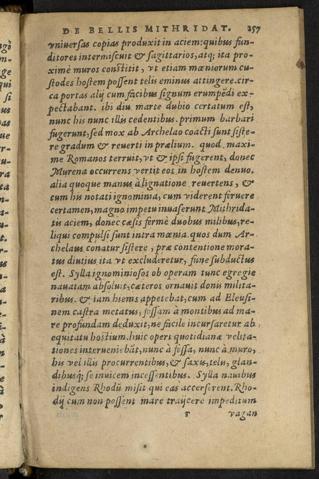 DE BELLIS MITHRIDAT. 257
vniuersas copias produxit in aciem: quibus fun-
ditores intermiscuit & sagittarios, atq; ita pro-
ximè muros constitit, vt etiam mœniorum cu-
stodes hostem possent telis eminus attingere. cir-
ca portas alij cum facibus signum erumpēdi ex-
pectabant. ibi diu marte dubio certatum est,
nunc his nunc illis cedentibus. primum barbari
fugerunt, sed mox ab Archelao coacti sunt siste-
re gradum & reuerti in prælium. quod maxi-
me Romanos terruit, vt & ipsi fugerent, donec
Murena occurrens vertit eos in hostem denuo.
alia quoque manus à lignatione reuertens, &
cum his notati ignominia, cum viderent feruere
certamen, magno impetu inuaserunt Mithrida-
tis aciem, donec cæsis fermè duobus milibus, re-
liqui compulsi sunt intra mœnia. quos dum Ar-
chelaus conatur sistere, præ contentione mora-
tus diutius ita vt excluderetur, fune subductus
est. Sylla ignominiosos ob operam tunc egregie
nauatam absoluit, cæteros ornauit donis milita-
ribus. & iam hiems appetebat, cum ad Eleusi-
nem castra metatus, fossam à montibus ad ma-
re profundam deduxit, ne facile incursaretur ab
equitatu hostium. huic operi quotidianæ velita-
tiones interueniebāt, nunc à fossa, nunc à muro,
his vel illis procurrentibus, & saxis, telis, glan-
dibusq; se inuicem incessentibus. Sylla nauibus
indigens Rhodū misit qui eas accerserent. Rho-
dij cum non possent mare traijcere impeditum
r vagan